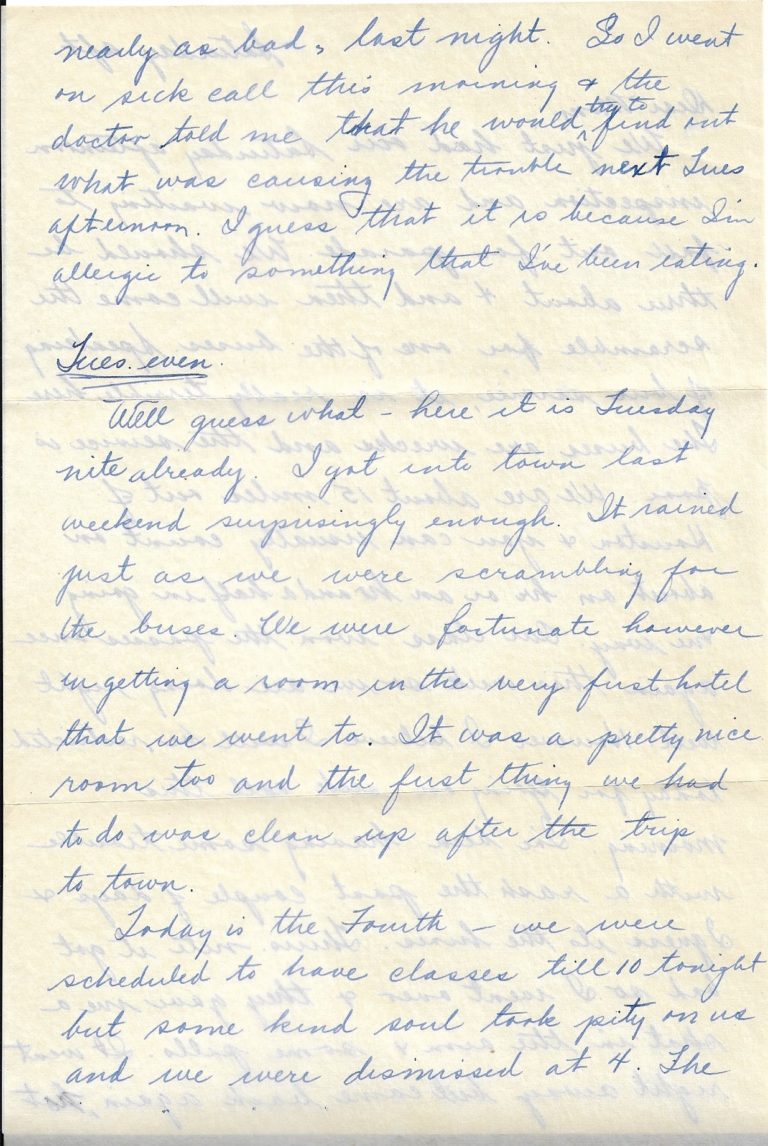 nearly as bad, last night. So I went
on sick call this morning & the
doctor told me that he would try to find out
what was causing the trouble next Tues
afternoon. I guess that it is because I'm
allergic to something that I've been eating.
Tues. even.
Well guess what - here it is Tuesday
nite already. I got into town last
weekend surprisingly enough. It rained
just as we were scrambling for
the buses. We were fortunate however
in getting a room in the very first hotel
that we went to. It was a pretty nice
room too and the first thing we had
to do was clean up after the trip
to town.
Today is the Fourth - we were
scheduled to have classes till 10 tonight
but some kind soul took pity on us
and we were dismissed at 4. The